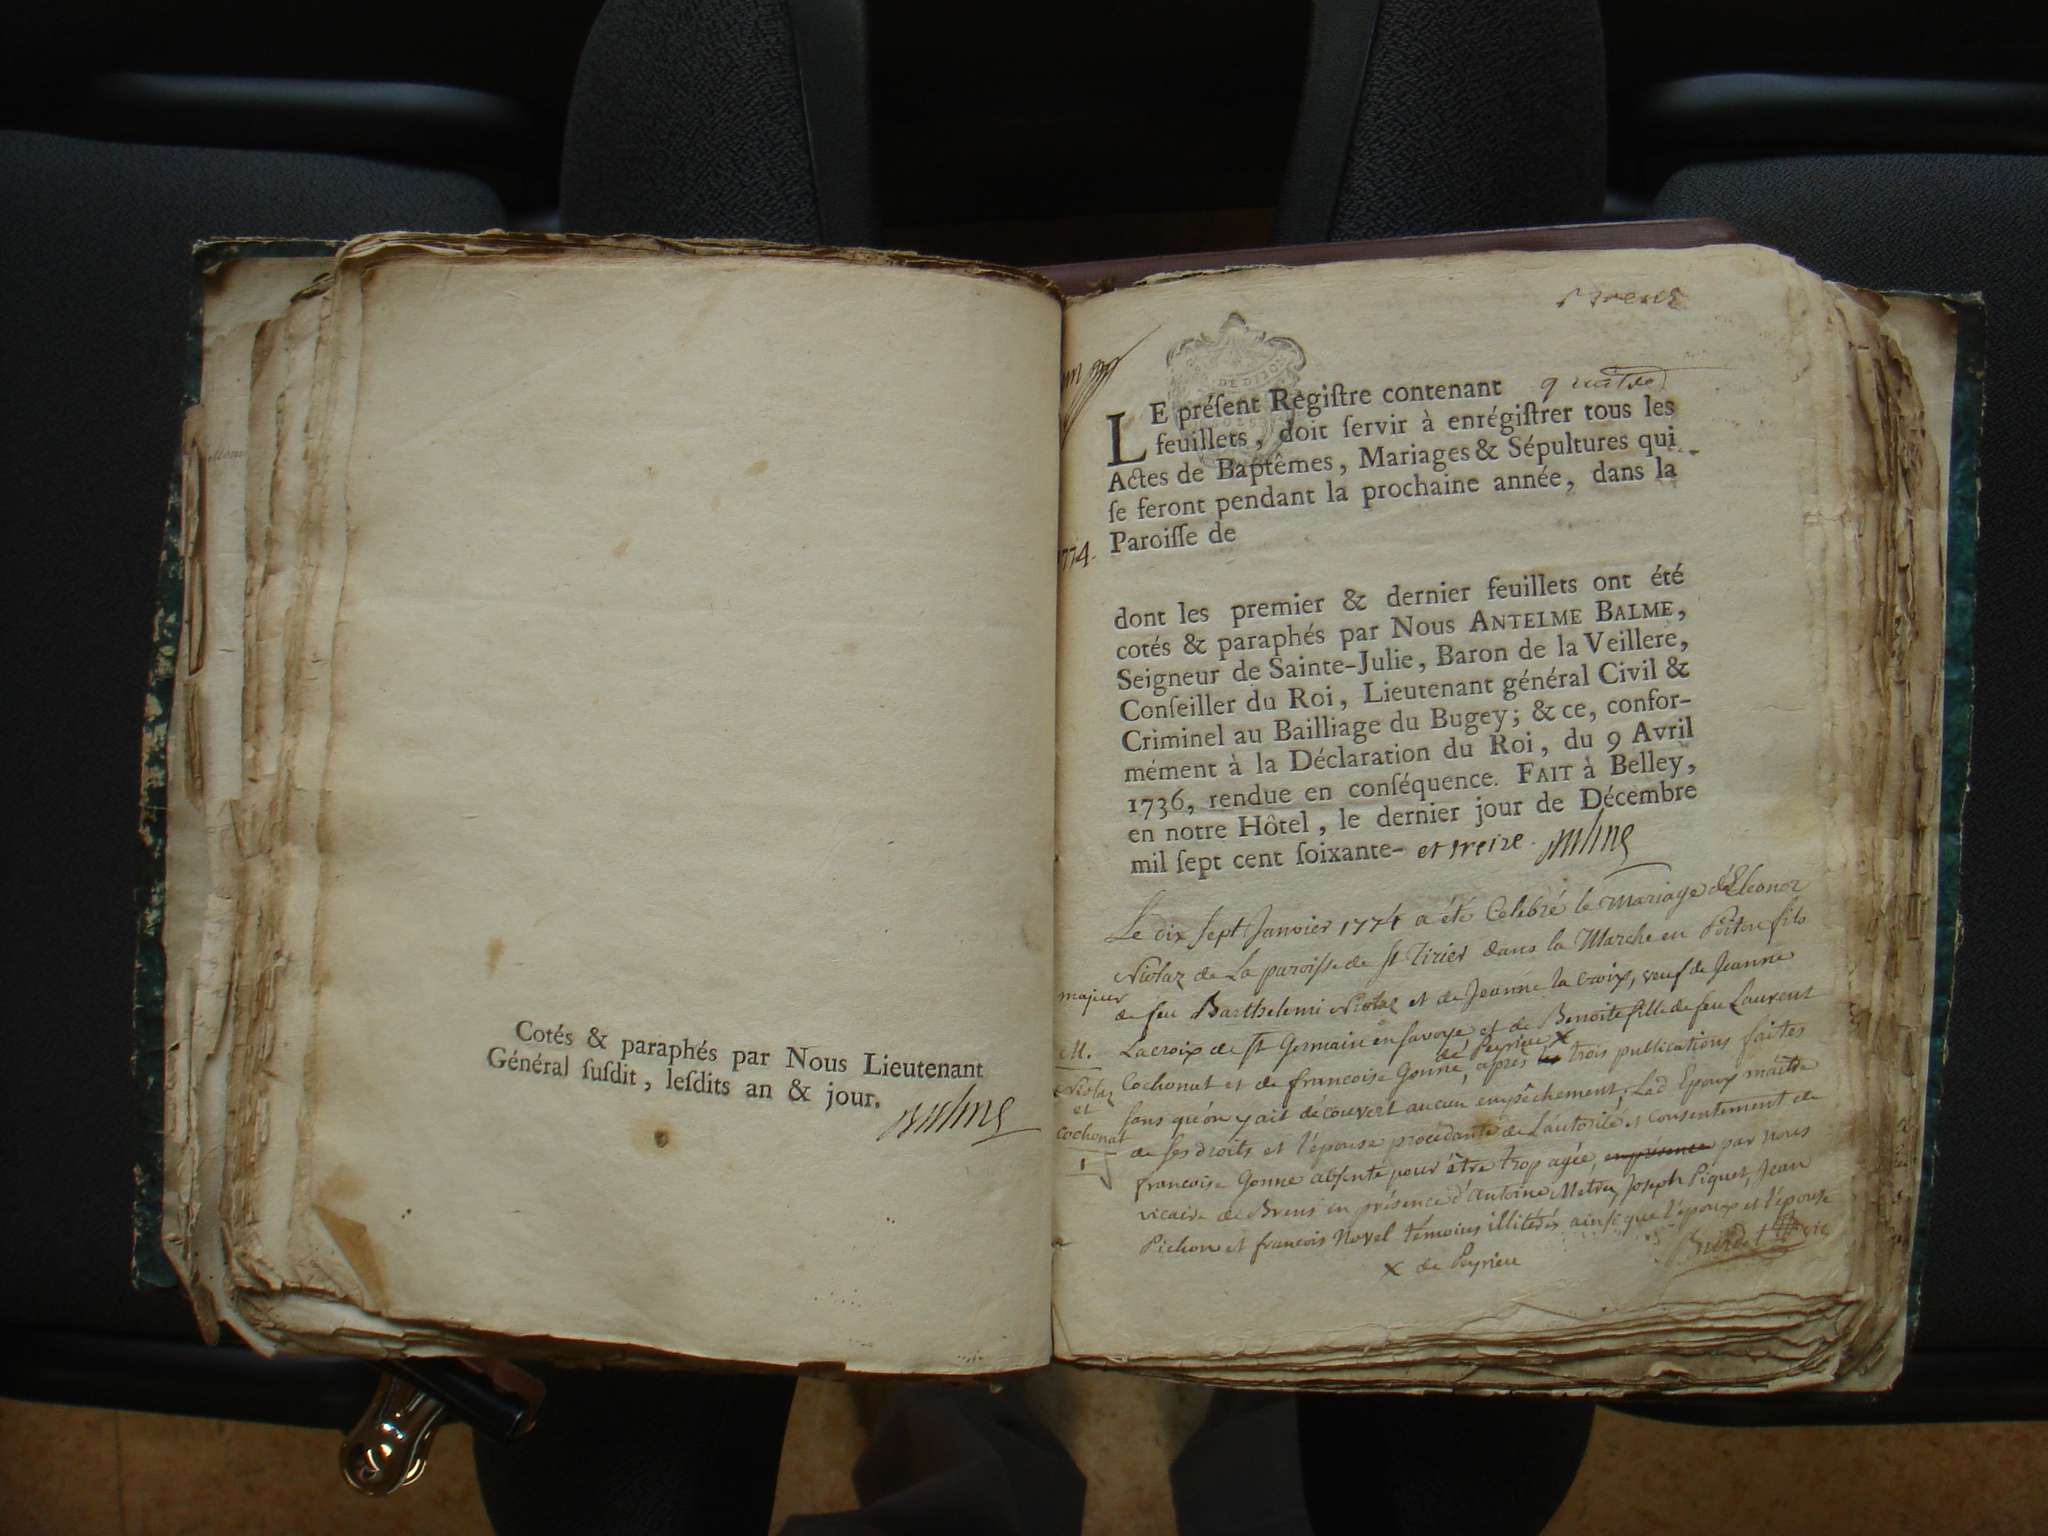 Cotés & paraphés par Nous Lieutenant
Général ſuſdit, leſdits an & jour.
Brens
quatre
LE préſent Regiſtre contenant
feuillets, doit ſervir à enrégiſtrer tous les
Actes de Baptêmes, Mariages & Sépultures qui
ſe feront pendant la prochaine année, dans la
Paroiſſe de
1774.
dont les premier & dernier feuillets ont été
cotés & paraphés par Nous ANTELME BALME,
Seigneur de Sainte-Julie, Baron de la Veillere,
Conſeiller du Roi, Lieutenant général Civil &
Criminel au Bailliage du Bugey; & ce, confor-
mément à la Déclaration du Roi, du 9 Avril
1736, rendue en conſéquence. FAIT à Belley,
en notre Hôtel, le dernier jour de Décembre
mil ſept cent ſoixante- et treize.
Le dix ſept Janvier 1774 a été Celebré le mariage d'Eleonor
Niolaz de La paroiſſe de ſt Tirier dans la Marche en Poitou fils
majeur
de feu Barthelemi Niolaz et de Jeanne la croix, veuf de Jeanne
M.
Lacroix de ſt Germain en ſavoye et de Benoite fille de feu Laurent
de Peyrieu x
Niolaz
et
Cochonat
1
Cochonat et de francoise Gonne, après trois publications faites
ſans qu'on y ait découvert aucun empêchement; Led Epoux maitre
de ſes droits et l'épouse procedante de L'autorité et consentement de
francoise Gonne absente pour être trop agée, en présence par nous
vicaire de Brens en présence d'antoine Metra, Joseph Piquet, Jean
Pichon et francois Novel témoins illitérés ainſi que l'époux et l'épouse
x de Peyrieu